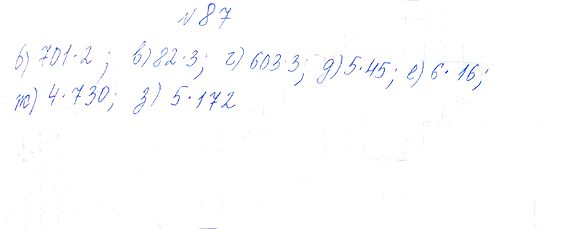 №87
б) 701·2; в) 82·3; г) 603·3; д) 5·45; е) 6·16;
ж) 4·730; з) 5·172